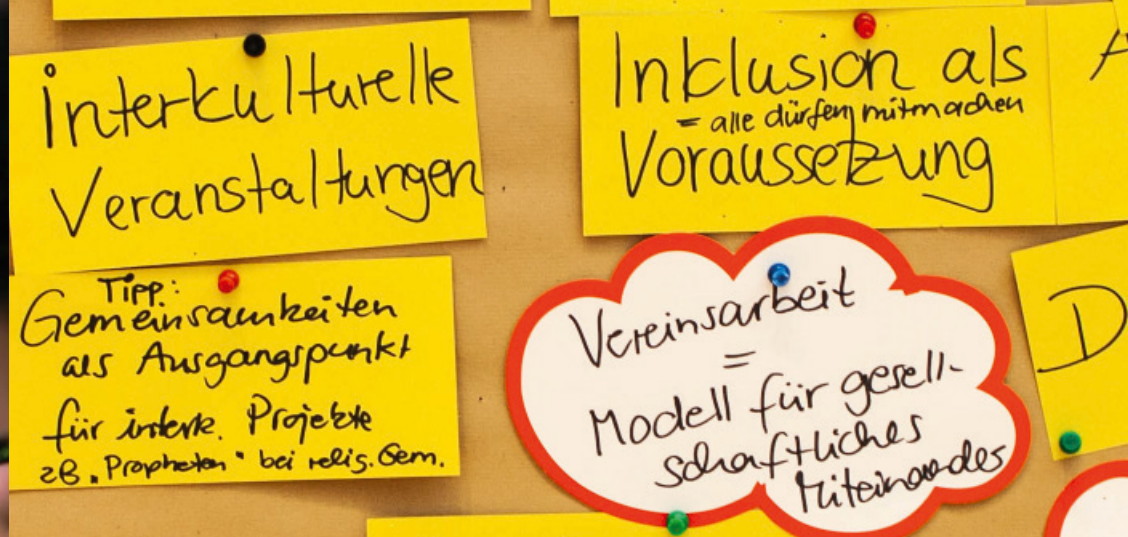 interkulturelle
Veranstaltungen
Inklusion als
= alle dürfen mitmachen
Voraussetzung
A
Tipp:
Gemeinsamkeiten
als Ausgangspunkt
für interk. Projekte
zB „Propheten" bei relig. Gem.
Vereinsarbeit
=
Modell für gesell-
schaftliches
Miteinander
D